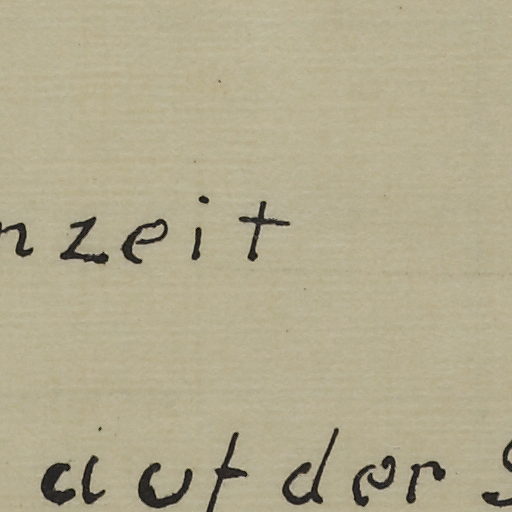 nzeit
auf der